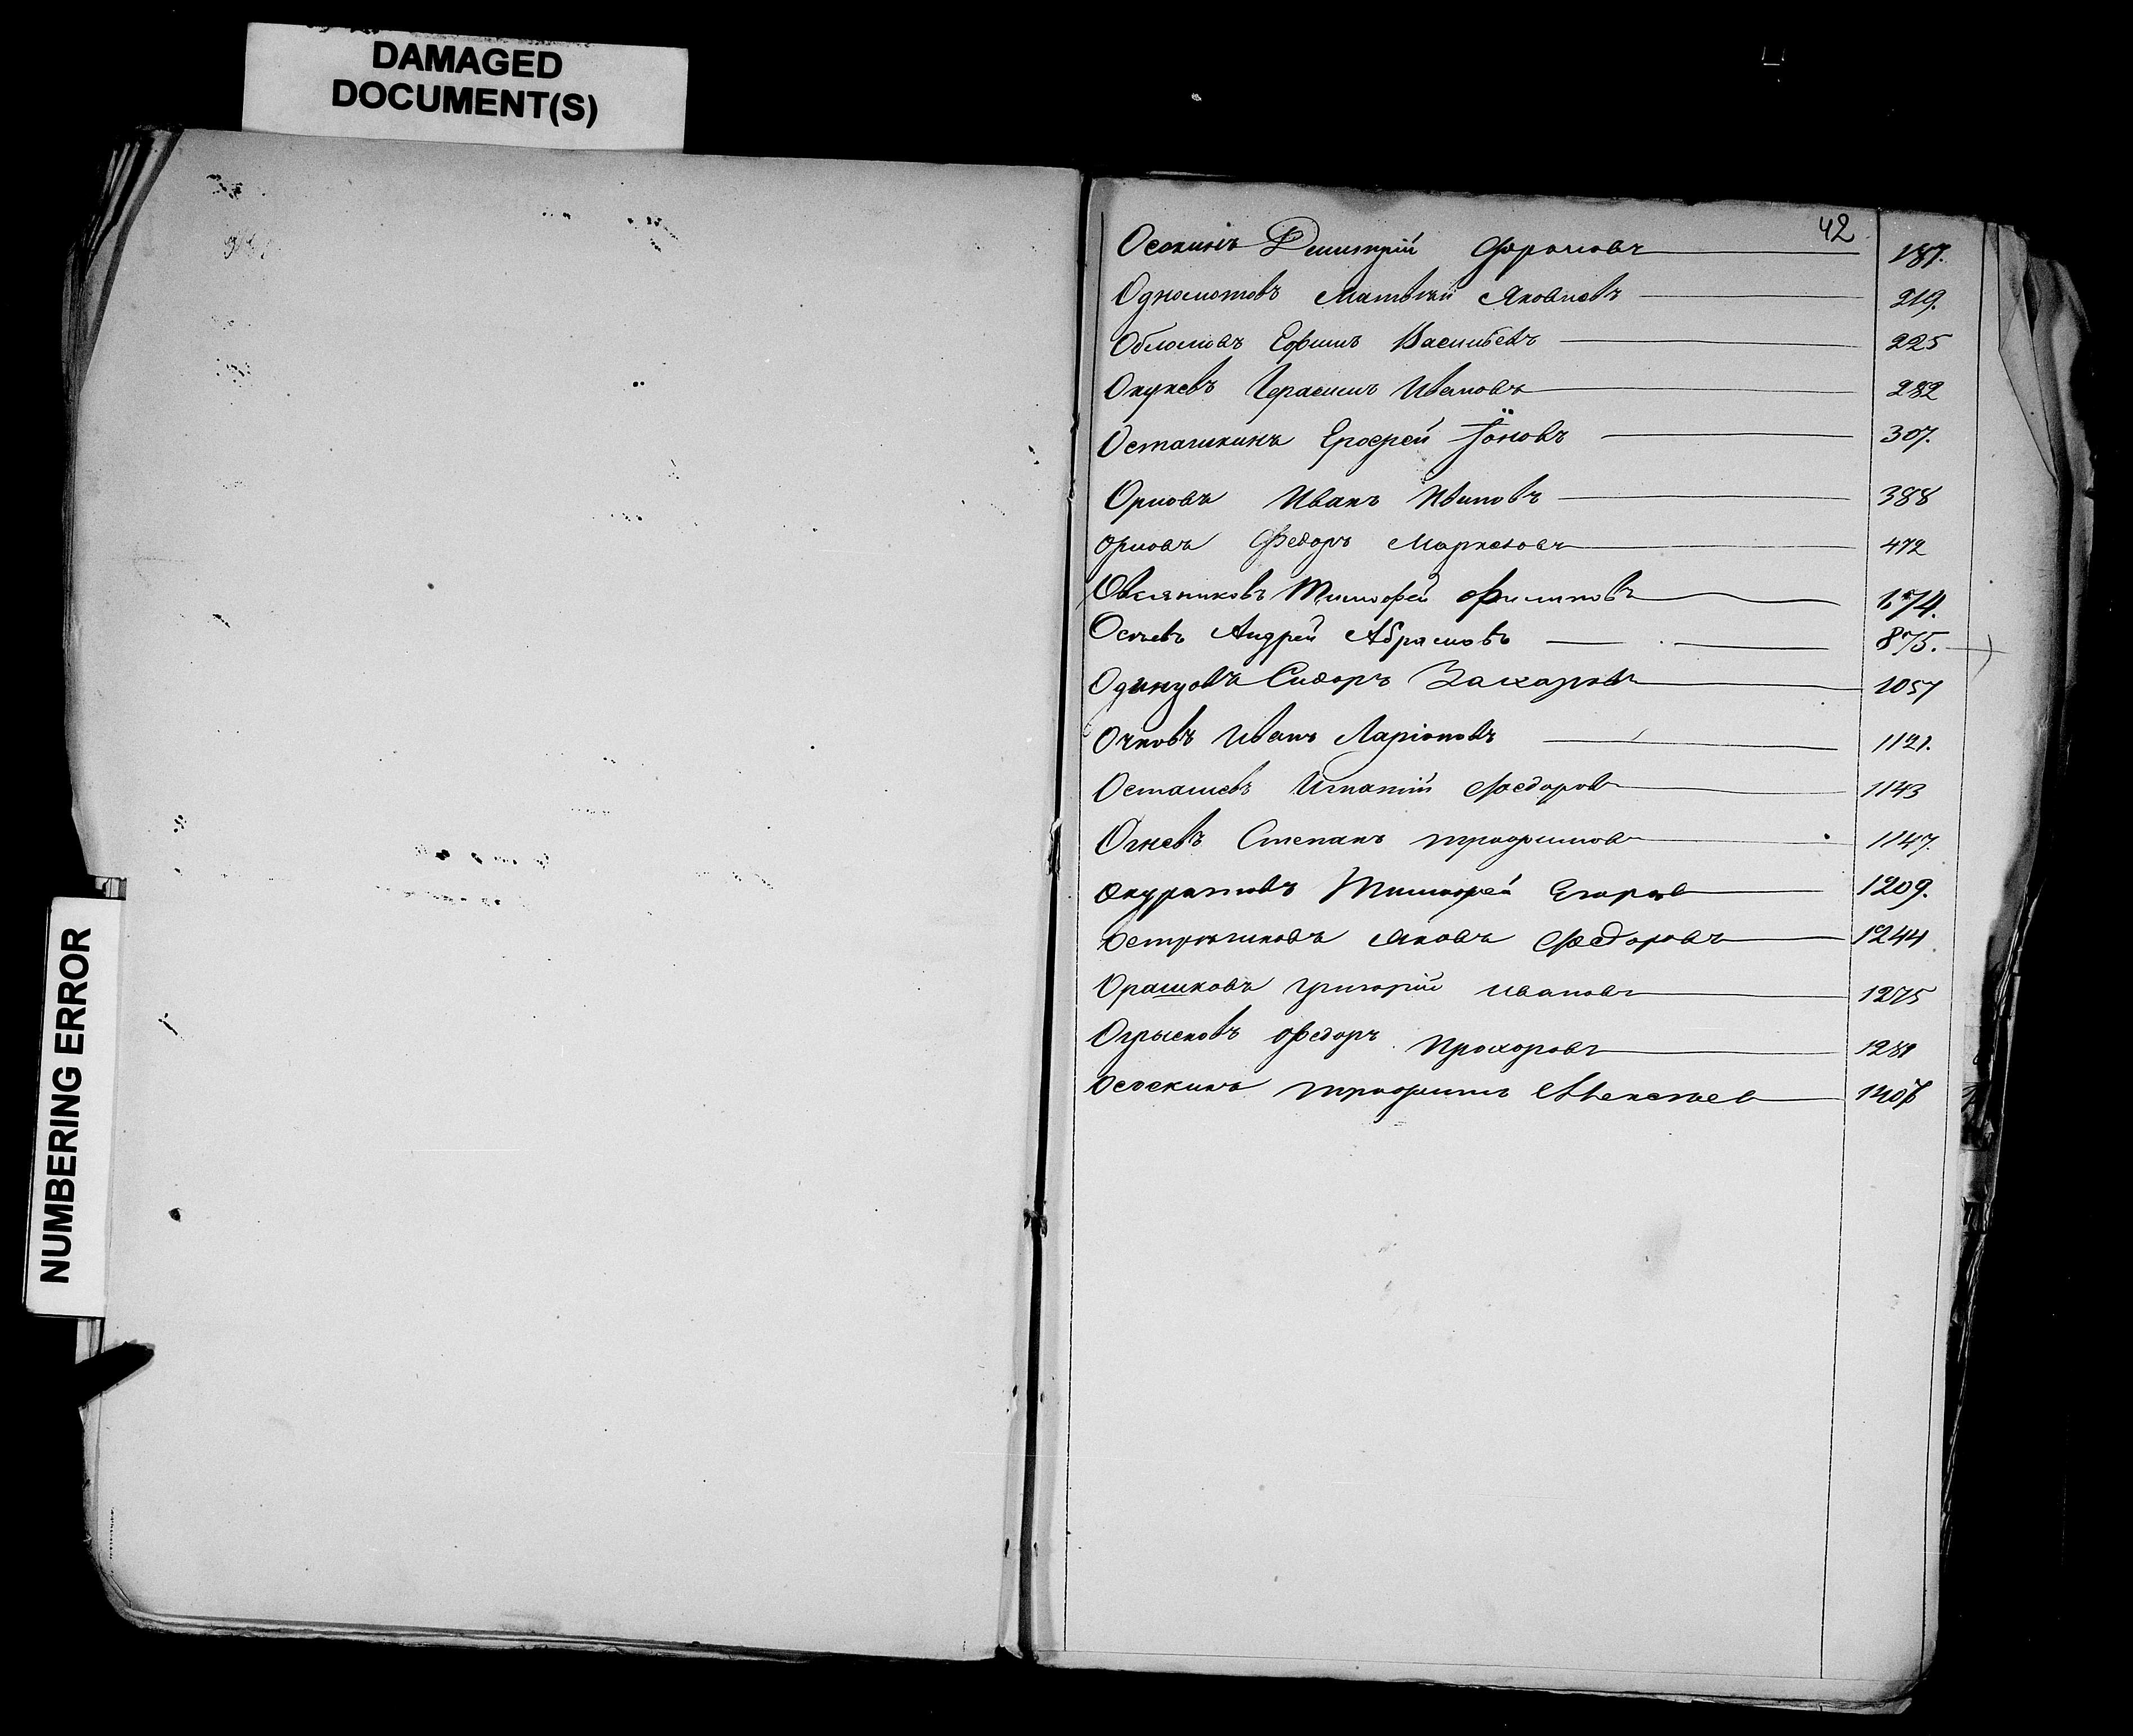 DAMAGED
DOCUMENT(S)
NUMBERING ERROR
42
Осокинъ Димитрій 187.
Одномотовъ Матвѣй Яковлевъ 219.
Обломовъ Ефимъ Васильевъ 225
Окуневъ Герасимъ Ивановъ 282
Осташкинъ Ерофей Іоновъ 307.
Орловъ Иванъ Ивановъ 388
Орловъ Федоръ Маркеловъ 472
Овсяниковъ Тимофей Филиповъ
Осиевъ Андрей Абрамовъ 875.
Одинцовъ Сидоръ Захаровъ 1057
Очковъ Иванъ Ларіоновъ 1121.
Осташевъ Игнатій Федоровъ 1143
Огневъ Степанъ Трофимовъ 1147.
Окуратовъ Тимофей Егоров 1209.
Остроженковъ Яковъ Федоровъ 1244
Орашковъ Григорій Ивановъ 1275
Огрысковъ Федоръ Прохоровъ 1281
Осѣекинъ Трофимъ Алексѣев